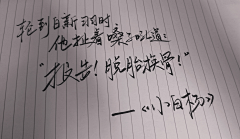 轮到日新羽时
他扯着嗓子吼道:
“报告!脱胎换骨!”
——《小白杨》